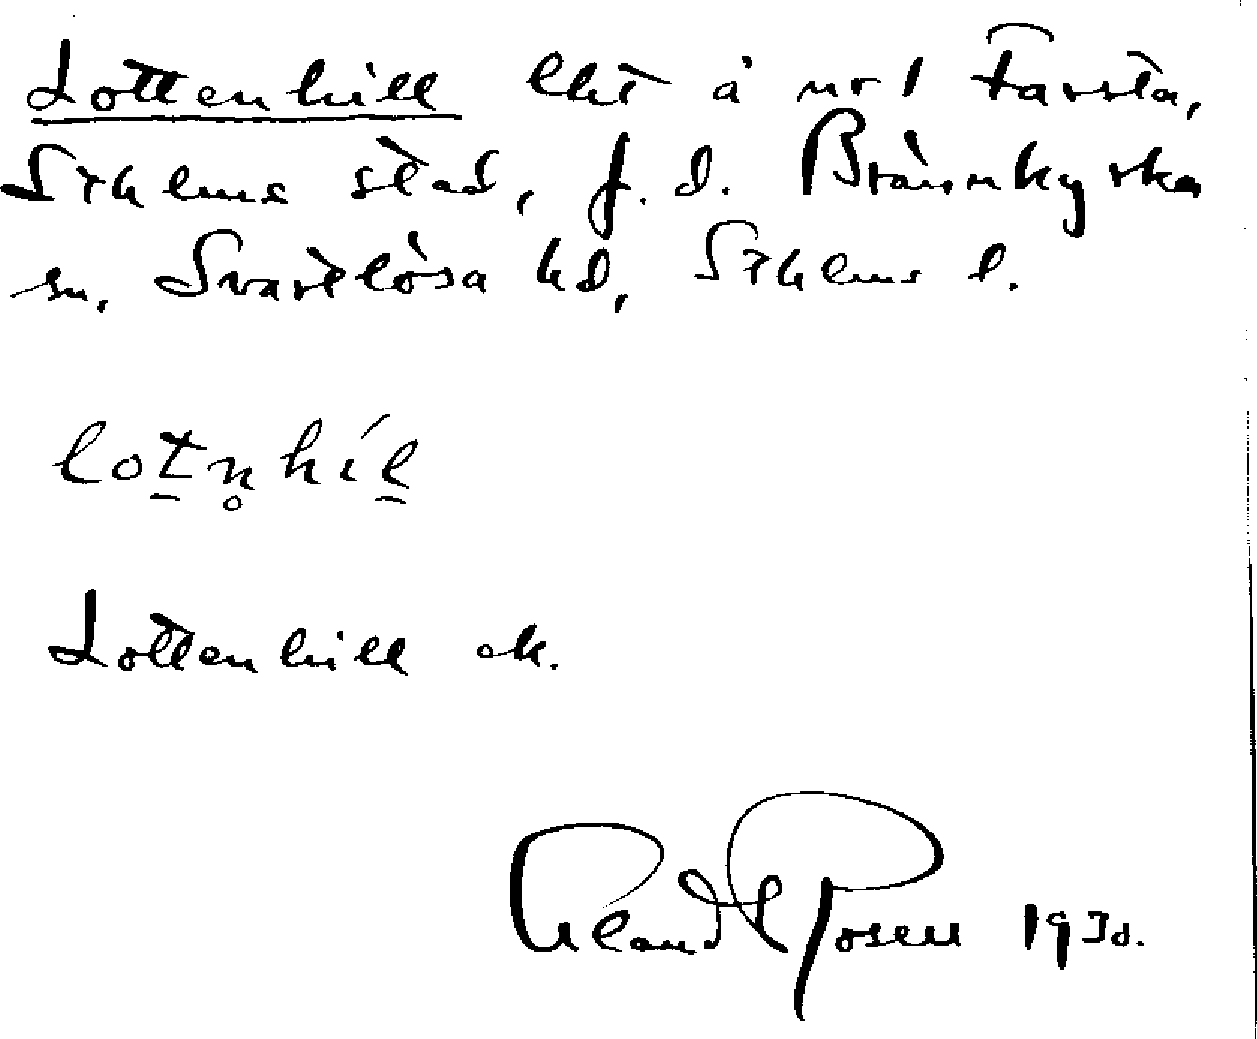 Lottenhill lht å nr 1 Farsta,
Sthlms stad, f.d. Brännkyrka
sn, Svartlösa hd, Sthlms l.
lotn̥híl
Lottenhill ek.
Rosell 1930.